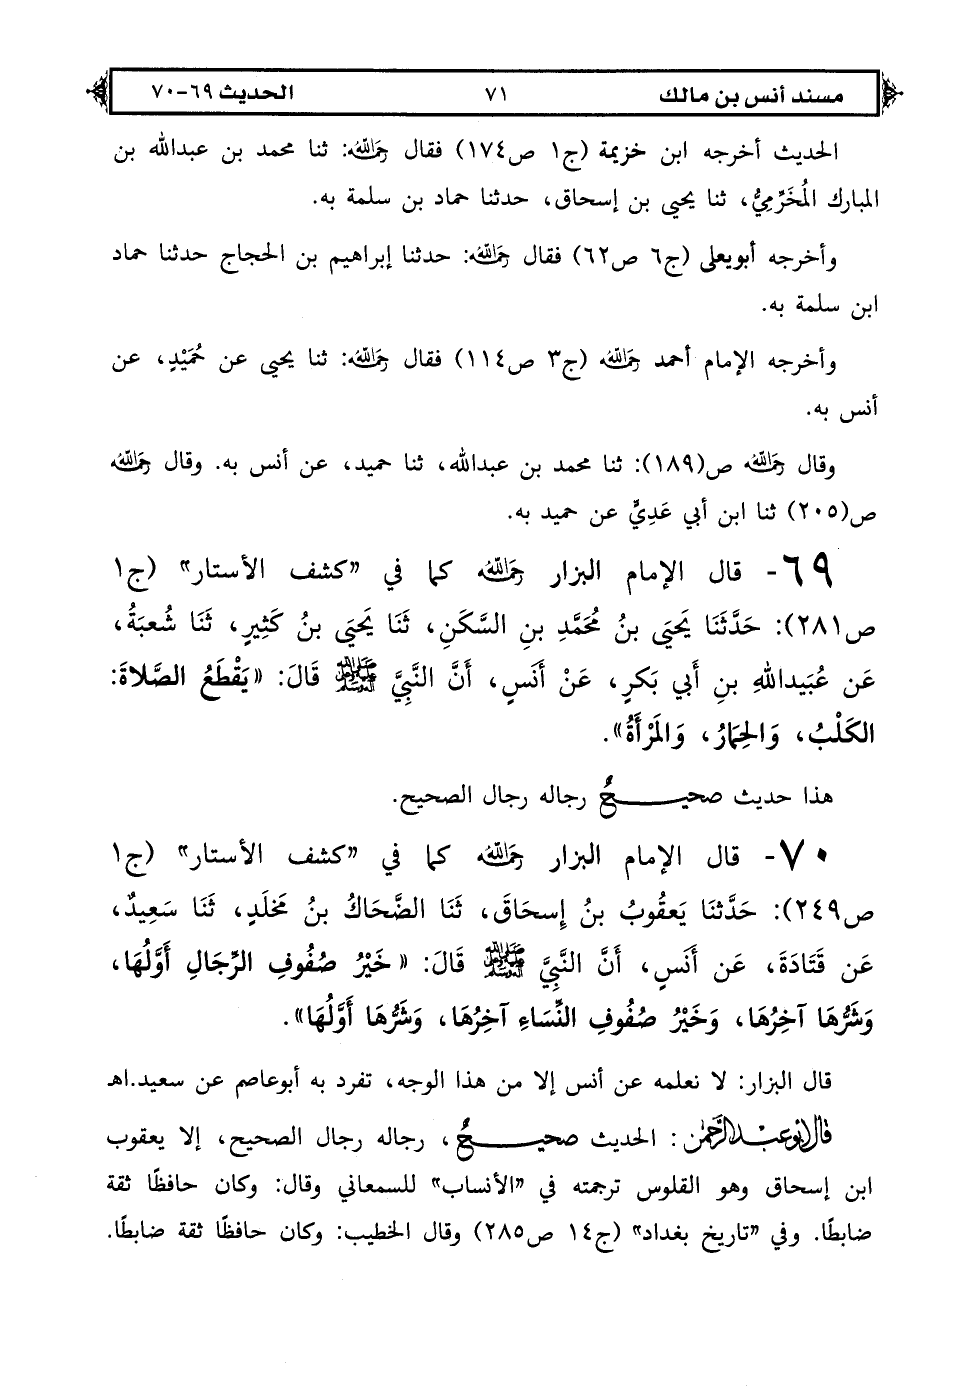 مسند أنس بن مالك ٧١ الحديث ٦٩-٧٠
الحديث أخرجه ابن خزيمة (ج١ ص١٧٤) فقال رَحِمَهُ اللهُ: ثنا محمد بن عبدالله بن
المبارك المُخَرِّمِيُّ، ثنا يحيى بن إسحاق، حدثنا حماد بن سلمة به.
وأخرجه أبويعلى (ج٦ ص٦٢) فقال رَحِمَهُ اللهُ: حدثنا إبراهيم بن الحجاج حدثنا حماد
ابن سلمة به.
وأخرجه الإمام أحمد رَحِمَهُ اللهُ (ج٣ ص١١٤) فقال رَحِمَهُ اللهُ: ثنا يحيى عن حُمَيْدٍ، عن
أنس به.
وقال رَحِمَهُ اللهُ ص(١٨٩): ثنا محمد بن عبدالله، ثنا حميد، عن أنس به. وقال رَحِمَهُ اللهُ
ص(٢٠٥) ثنا ابن أبي عَدِيٍّ عن حميد به.
٦٩- قال الإمام البزار رَحِمَهُ اللهُ كما في "كشف الأستار" (ج١
ص٢٨١): حَدَّثَنَا يَحيَى بنُ مُحَمَّدِ بنِ السَّكَنِ، ثَنَا يَحيَى بنُ كَثِيرٍ، ثَنَا شُعبَةُ،
عَن عُبَيدِاللهِ بنِ أَبي بَكرٍ، عَنْ أَنَسٍ، أَنَّ النَّبِيَّ ﷺ قَالَ: «يَقْطَعُ الصَّلاةَ:
الكَلْبُ، وَالحِمَارُ، وَالمَرْأَةُ».
هذا حديث صحيـــــــحٌ رجاله رجال الصحيح.
٧٠- قال الإمام البزار رَحِمَهُ اللهُ كما في "كشف الأستار" (ج١
ص٢٤٩): حَدَّثنَا يَعقُوبُ بنُ إِسحَاقَ، ثَنَا الضَّحَاكُ بنُ مَخلَدٍ، ثَنَا سَعِيدٌ،
عَن قَتَادَةَ، عَن أَنَسٍ، أَنَّ النَّبِيَّ ﷺ قَالَ: «خَيْرُ صُفُوفِ الرِّجَالِ أَوَّلُهَا،
وَشَرُّهَا آخِرُهَا، وَخَيْرُ صُفُوفِ النِّسَاءِ آخِرُهَا، وَشَرُّهَا أَوَّلُهَا».
قال البزار: لا نعلمه عن أنس إلا من هذا الوجه، تفرد به أبوعاصم عن سعيد.اهـ
قال أبو عبد الرحمن: الحديث صحيـــــــحٌ، رجاله رجال الصحيح، إلا يعقوب
ابن إسحاق وهو القلوس ترجمته في "الأنساب" للسمعاني وقال: وكان حافظًا ثقة
ضابطًا. وفي "تاريخ بغداد" (ج١٤ ص٢٨٥) وقال الخطيب: وكان حافظًا ثقة ضابطًا.